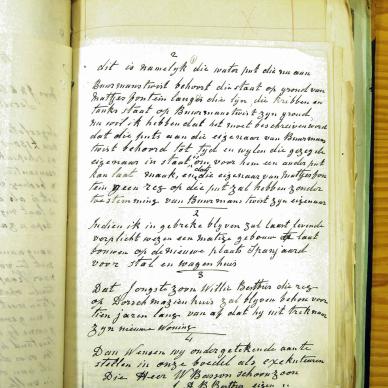 2
dit is namelyk die water put die nu aan
Buurmanstwist behoort die staat op grond van
Matjesfontein langes die lyn, die kribben en
tanks staat op Buurmanstwist zyn grond,
nu wil ik hebben dat het moet beschreven word
dat die puts aan die eigenaar van Buurmans
twist behoord tot tyd en wylen die gezegde
eigenaar in staat, om voor hem een ander put
kan laat maak, en dat die eigenaar van Matjesfon
tein geen reg op die put zal hebben zonder
toestemming van Buurmanstwist zyn eigenaar
2
Indien ik in gebreke blyven zal laast levende
verplicht wezen een matige gebouw te laat
bouwen op de nieuwe plaats Spanjaard
voor stal en wagenhuis
3
Dat Jongste zoon Willie Bertha die reg
op Dorschmagienhuis zal blyven behou voor
tien jaren lang van af dat hy uit trek naar
zyn nieuwe Woning
4
Dan Wensen wy ondergetekende aante
stellen in onze boedel als exekuteuren
Die Heer W Basson schoonzoon
B Botha eigen